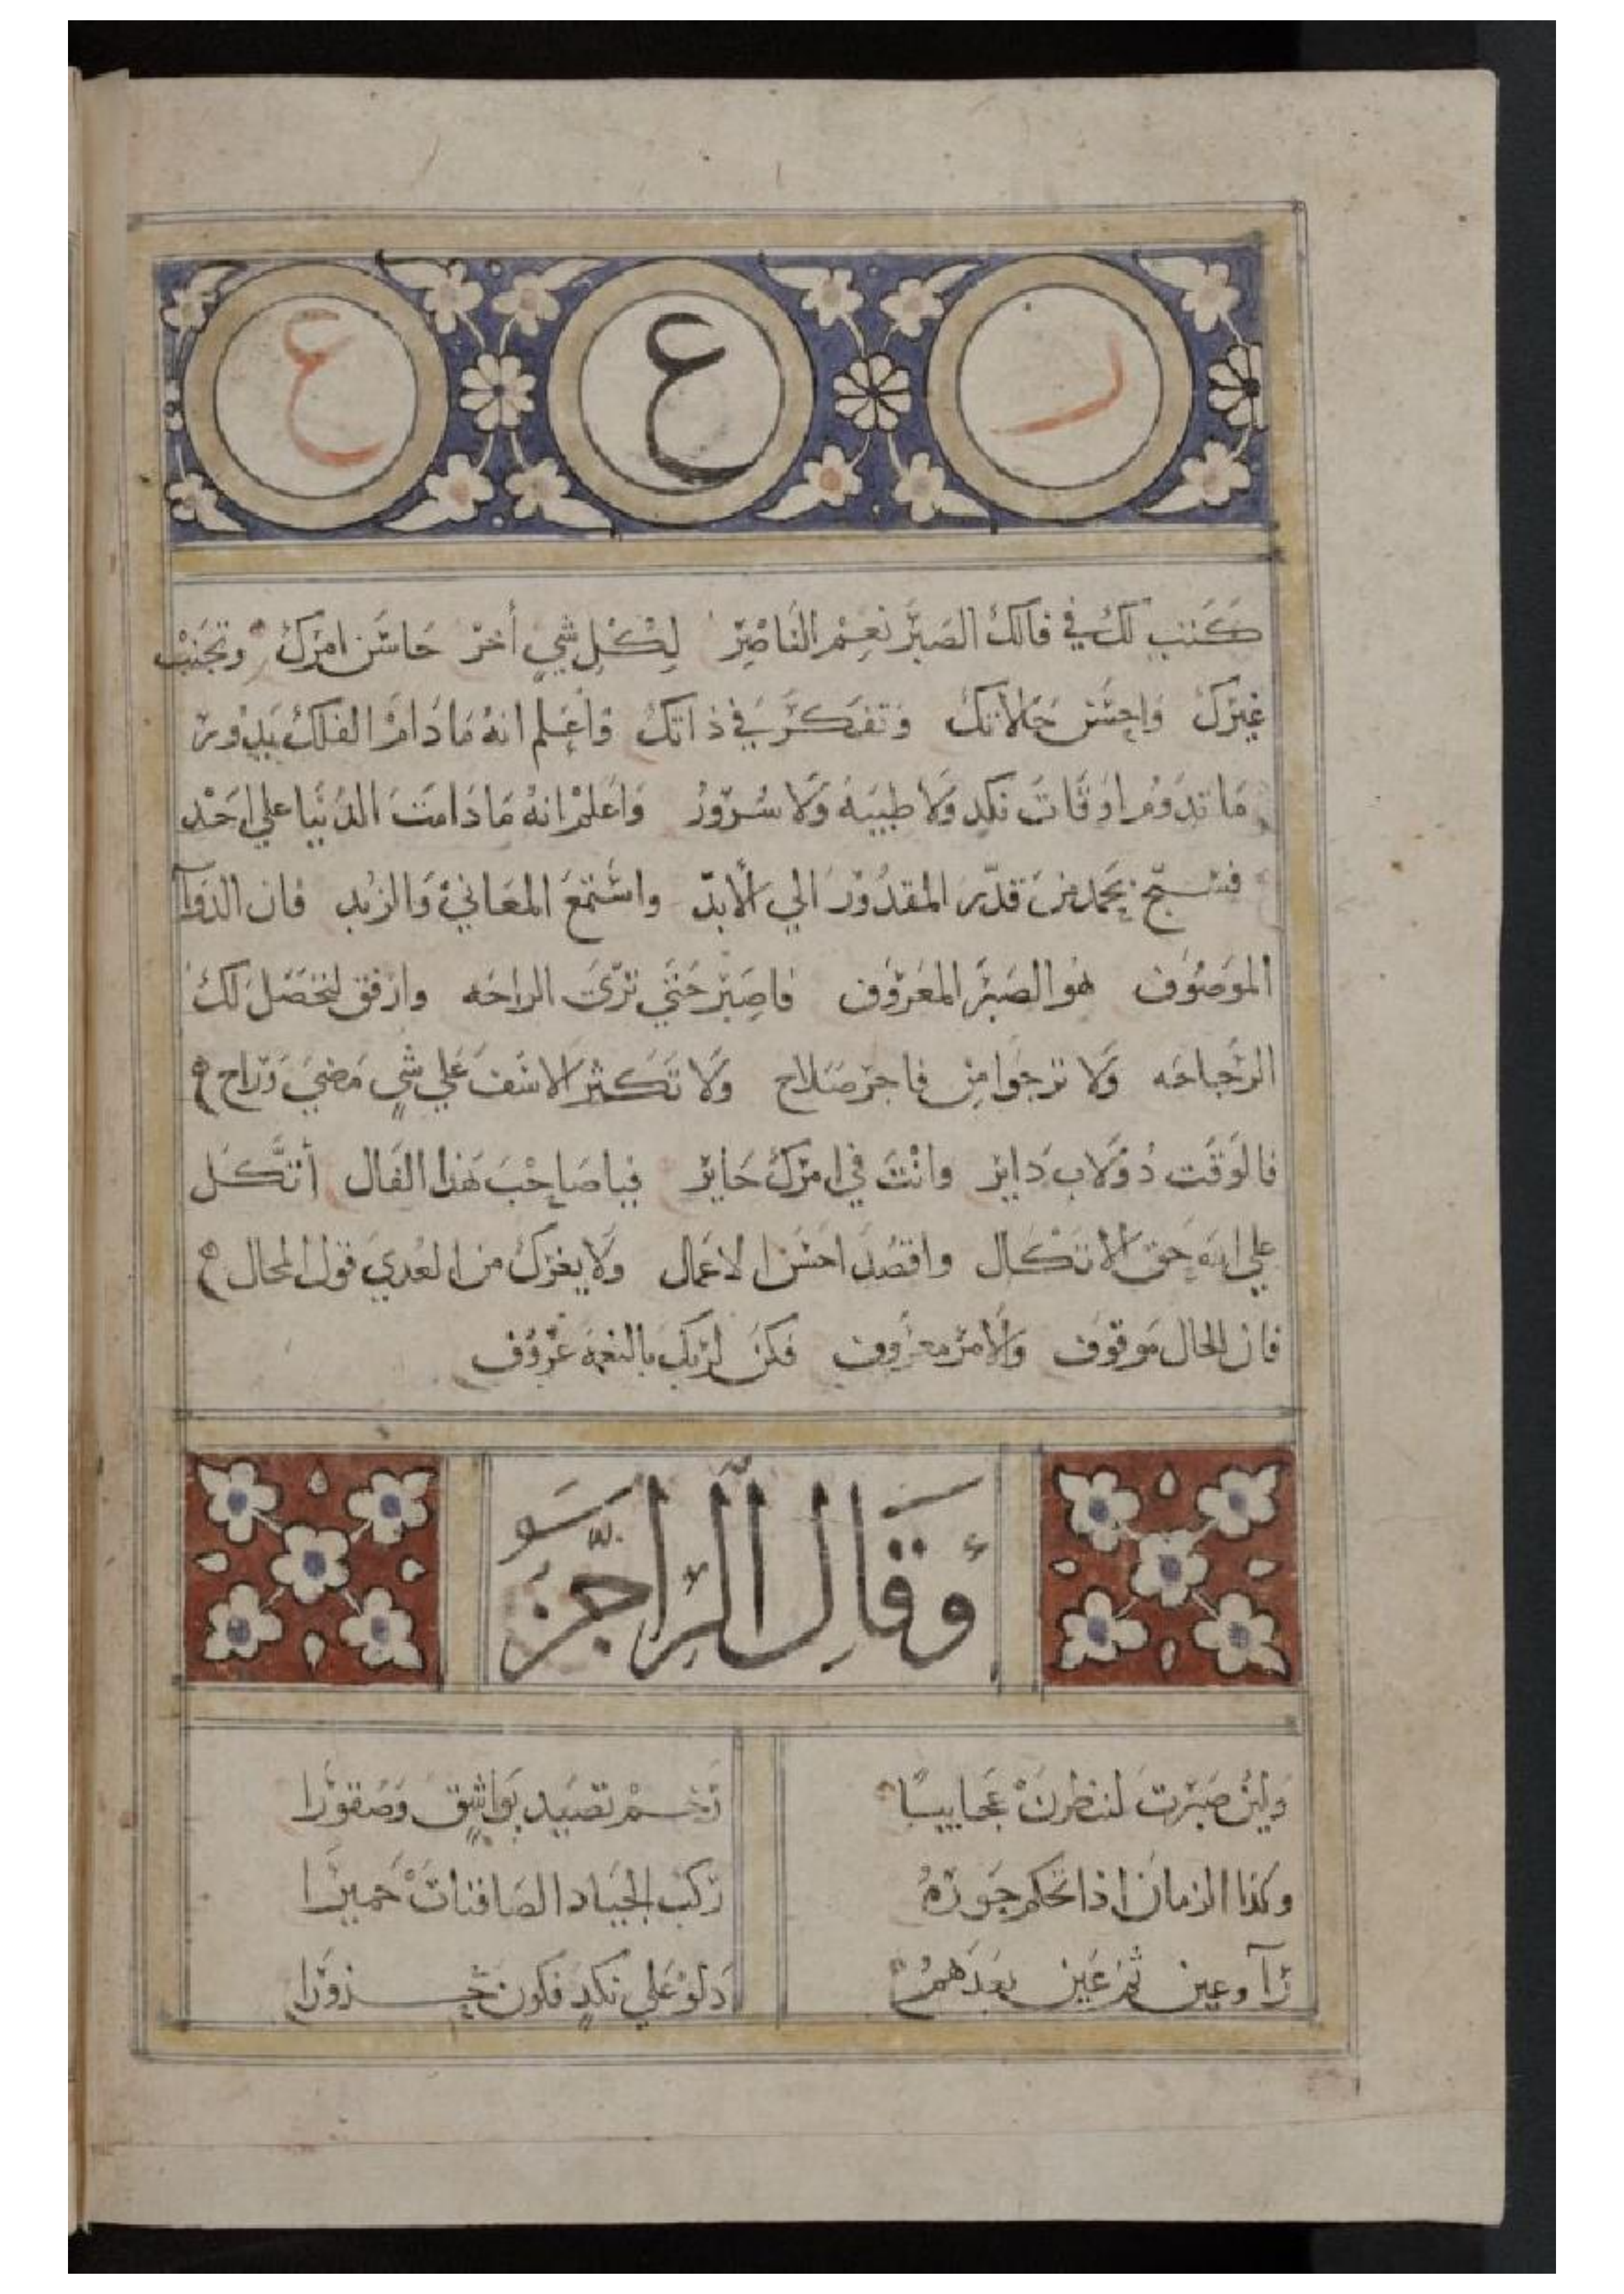 ر ع ع
كتب لك في فالك الصبر نعم الناصر لكل شي أخر حاسن امرك وتجنب
غيرك واحسن حالاتك وتفكر في ذاتك واعلم انه ما دام الفلك يدور
ما تدوم اوقات نكد ولا طيبه ولا سرور واعلم انه ما دامت الدنيا علي احد
فسبح بحمد من قدر المقدور الي الابد واستمع المعاني والزبد فان الدوآ
الموصوف هو الصبر المعروف فاصبر حتي تري الراحه وارفق لتحصل لك
الرجاحه ولا ترجوا من فاجر صلاح ولا تكثر الاسف علي شي مضي وراح
فالوقت دولاب داير وانت في امرك حاير فيا صاحب هذا الفال أتكل
علي الله حق الاتكال واقصد احسن الاعمال ولا يغرك من العدي قول المحال
فان الحال موقوف والامر معروف فكن لربك بالنعمة عروف
وقال الراجز
ولين صبرت لتنظرن عجايبا رخم تصيد بواشق وصقورا
وكذا الزمان اذا تحكم جوره ركب الجياد الصافنات حميرا
رآ وعين ثم غين بعدهم دلو علي نكد فكون حزورا